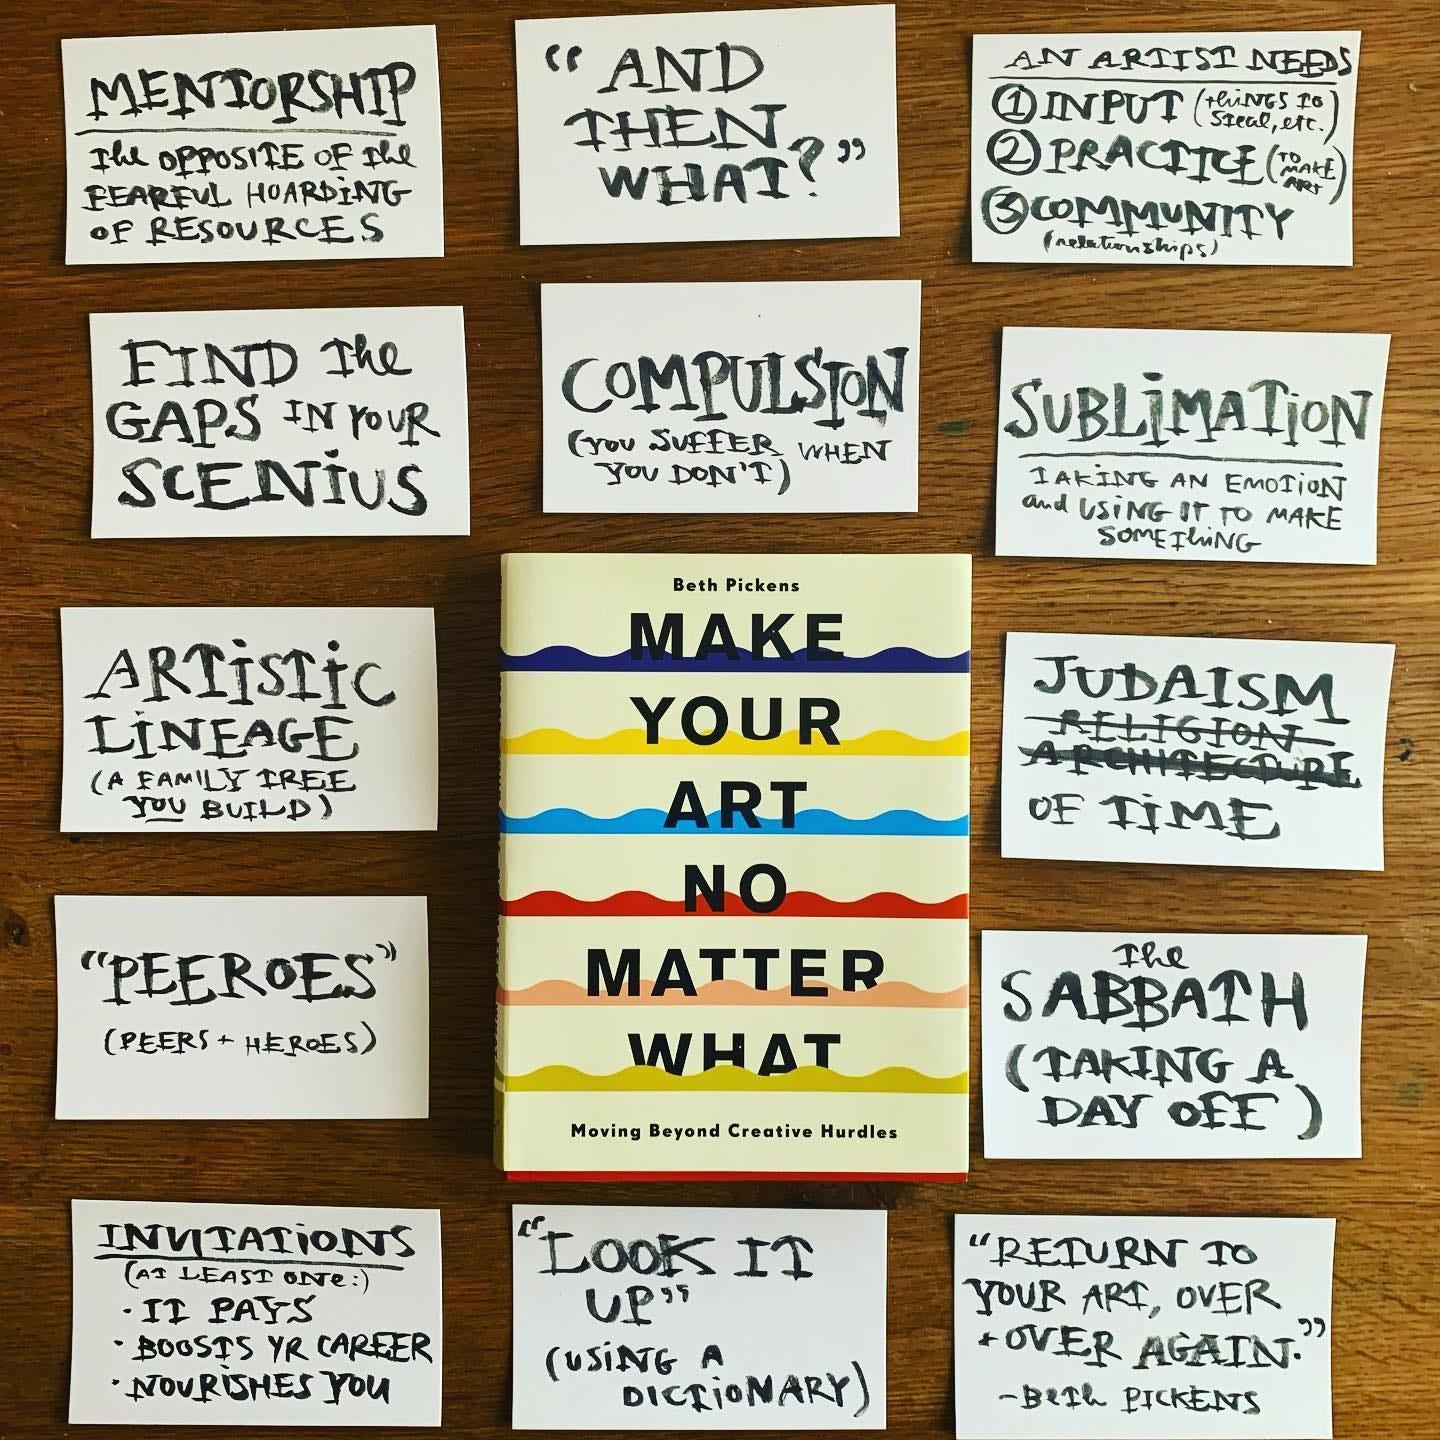 MENTORSHIP
the OPPOSITE OF the
FEARFUL HOARDING
OF RESOURCES
"AND
THEN
WHAT?"
AN ARTIST NEEDS
① INPUT (thINGS TO
Steal, etc.)
② PRACTICE (TO
MAKE
ART)
③ COMMUNITY
(relationships)
FIND the
GAPS IN YOUR
SCENIUS
COMPULSION
(YOU SUFFER WHEN
YOU DON'T)
SUBLiMATiON
TAKiNG AN EMOTiON
and USiNG IT TO MAKE
SOMEthiNG
ARTiSTiC
LiNEAGE
(A FAMILY TREE
YOU BUILD)
Beth Pickens
MAKE
YOUR
ART
NO
MATTER
WHAT
Moving Beyond Creative Hurdles
JUDAISM
RELIGION
ARCHITECTURE
OF TiME
"PEEROES"
(PEERS + HEROES)
the
SABBATH
(TAKING A
DAY OFF)
INVITATiONS
(AT LEAST ONe:)
· IT PAYS
· BOOSTS YR CAREER
· NOURISHES YOU
"LOOK IT
UP"
(USiNG A
DICTiONARY)
"RETURN TO
YOUR ART, OVER
+ OVER AGAIN."
-Beth PICKENS